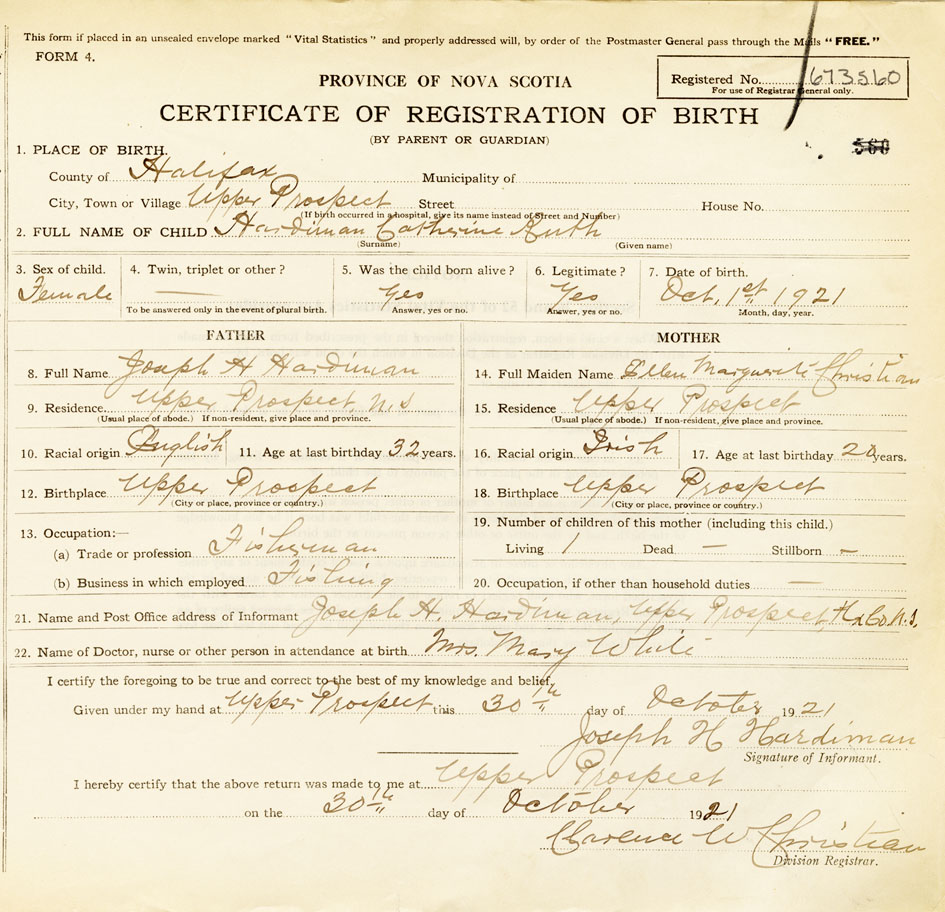 This form if placed in an unsealed envelope marked "Vital Statistics" and properly addressed will, by order of the Postmaster General pass through the Mails "FREE."
FORM 4.
PROVINCE OF NOVA SCOTIA
Registered No. 673560
For use of Registrar General only.
CERTIFICATE OF REGISTRATION OF BIRTH
(BY PARENT OR GUARDIAN)
560
1. PLACE OF BIRTH.
County of Halifax Municipality of
City, Town or Village Upper Prospect Street House No.
(If birth occurred in a hospital, give its name instead of Street and Number)
2. FULL NAME OF CHILD Hardiman Catherine Ruth
(Surname) (Given name)
3. Sex of child. 4. Twin, triplet or other? 5. Was the child born alive? 6. Legitimate? 7. Date of birth.
Female — Yes Yes Oct. 1st 1921
To be answered only in the event of plural birth. Answer, yes or no. Answer, yes or no. Month, day, year.
FATHER MOTHER
8. Full Name Joseph H Hardiman 14. Full Maiden Name Ellen Marguerite Christian
9. Residence Upper Prospect, N.S 15. Residence Upper Prospect
(Usual place of abode.) If non-resident, give place and province. (Usual place of abode.) If non-resident, give place and province.
10. Racial origin English 11. Age at last birthday 32 years. 16. Racial origin Irish 17. Age at last birthday years.
12. Birthplace Upper Prospect 18. Birthplace Upper Prospect
(City or place, province or country.) (City or place, province or country.)
13. Occupation:— 19. Number of children of this mother (including this child.)
(a) Trade or profession Fisherman Living 1 Dead — Stillborn —
(b) Business in which employed Fishing 20. Occupation, if other than household duties —
21. Name and Post Office address of Informant Joseph H. Hardiman, Upper Prospect, Hx Co. N.S.
22. Name of Doctor, nurse or other person in attendance at birth Mrs. Mary White
I certify the foregoing to be true and correct to the best of my knowledge and belief.
Given under my hand at Upper Prospect this 30th day of October 1921
Joseph H Hardiman
Signature of Informant.
I hereby certify that the above return was made to me at Upper Prospect
on the 30th day of October 1921
Clarence W Christian
Division Registrar.